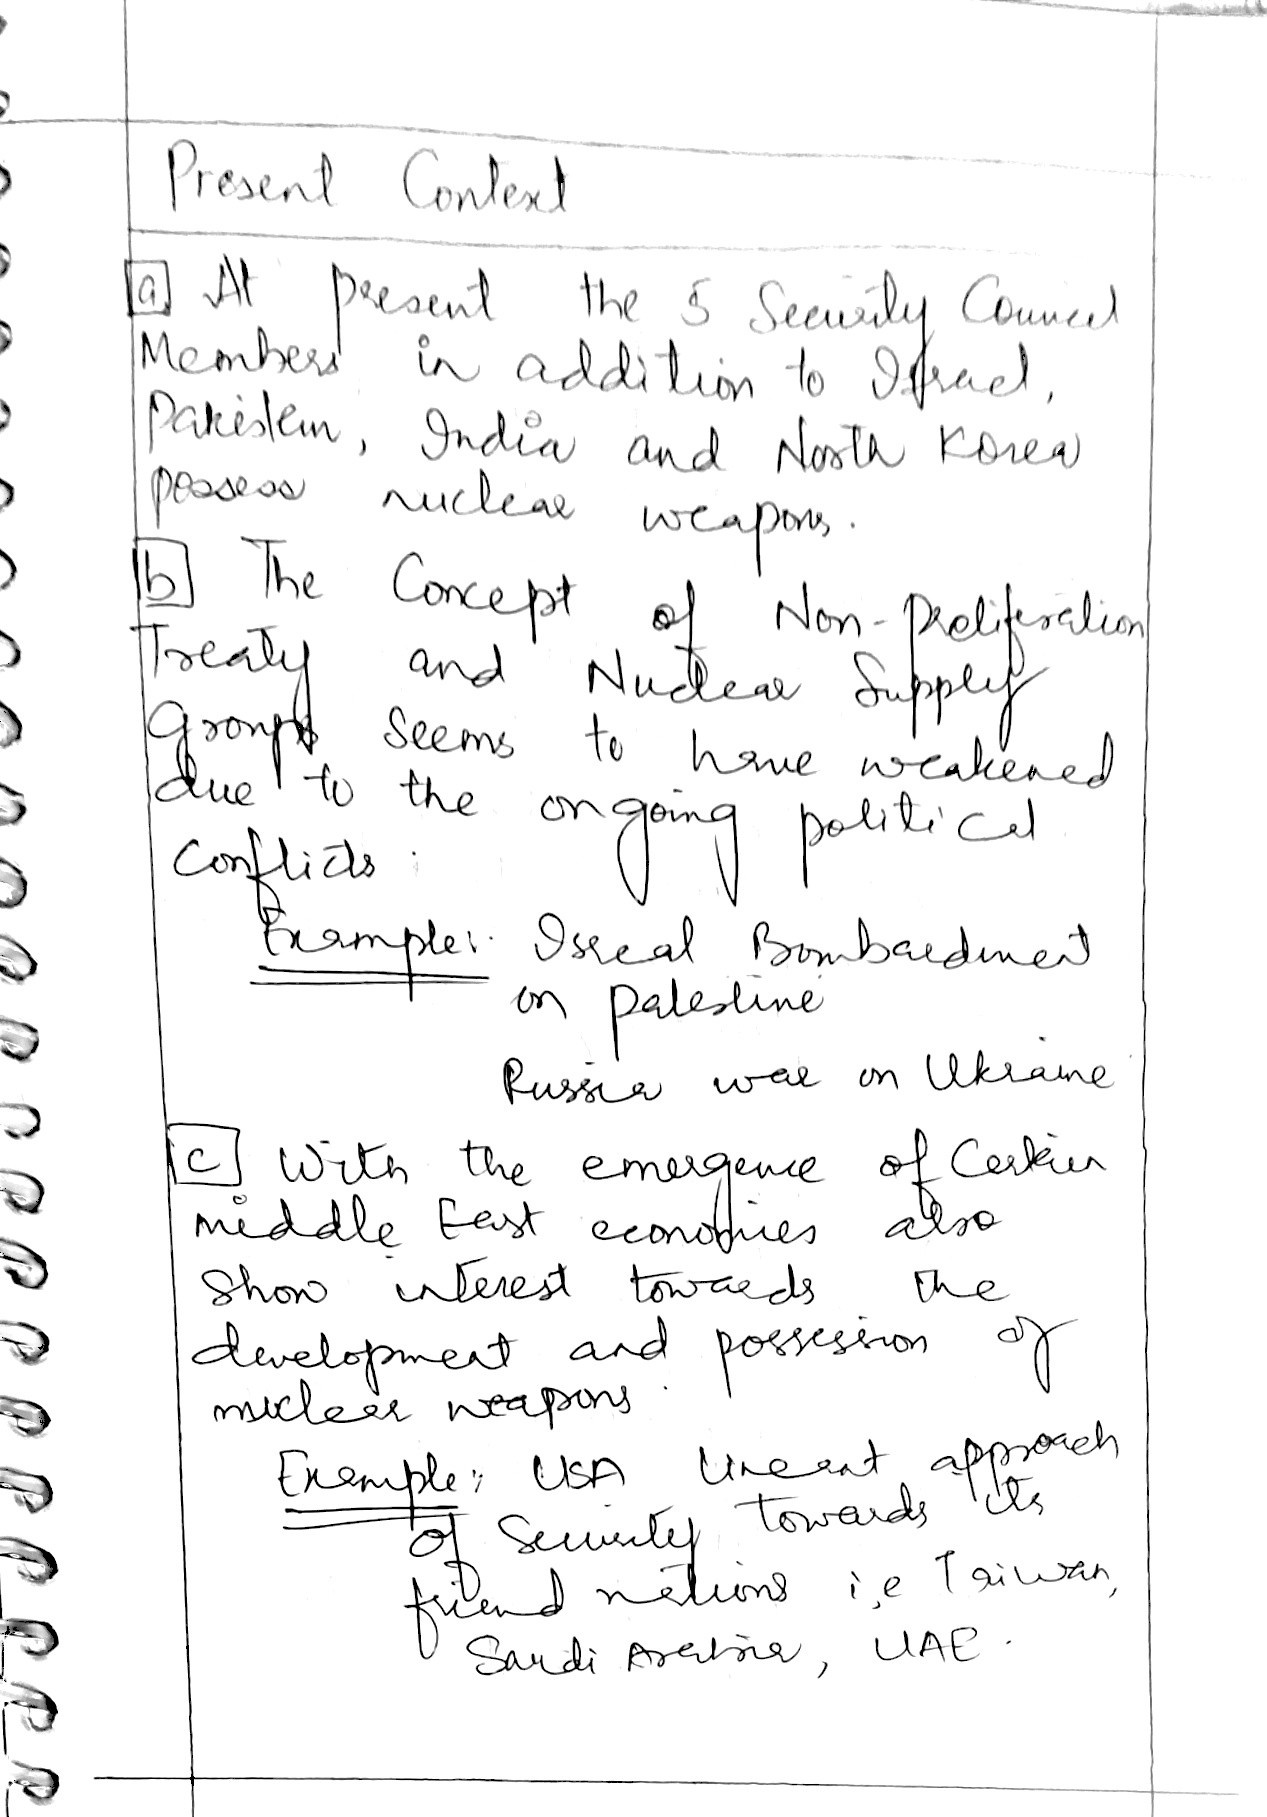 Present Context
a At present the 5 Security Council
Members in addition to Israel,
Pakistan, India and North Korea
possess nuclear weapons.
b The Concept of Non-Proliferation
Treaty and Nuclear Supply
Groups seems to have weakened
due to the ongoing political
Conflicts.
Example: Isreal Bombardment
on palestine
Russia war on Ukraine
c With the emergence of Certain
middle East economies also
Show interest towards the
development and possession of
nuclear weapons.
Example: USA approach
of Security towards its
friend nations i,e Taiwan,
Saudi Arabia, UAE.